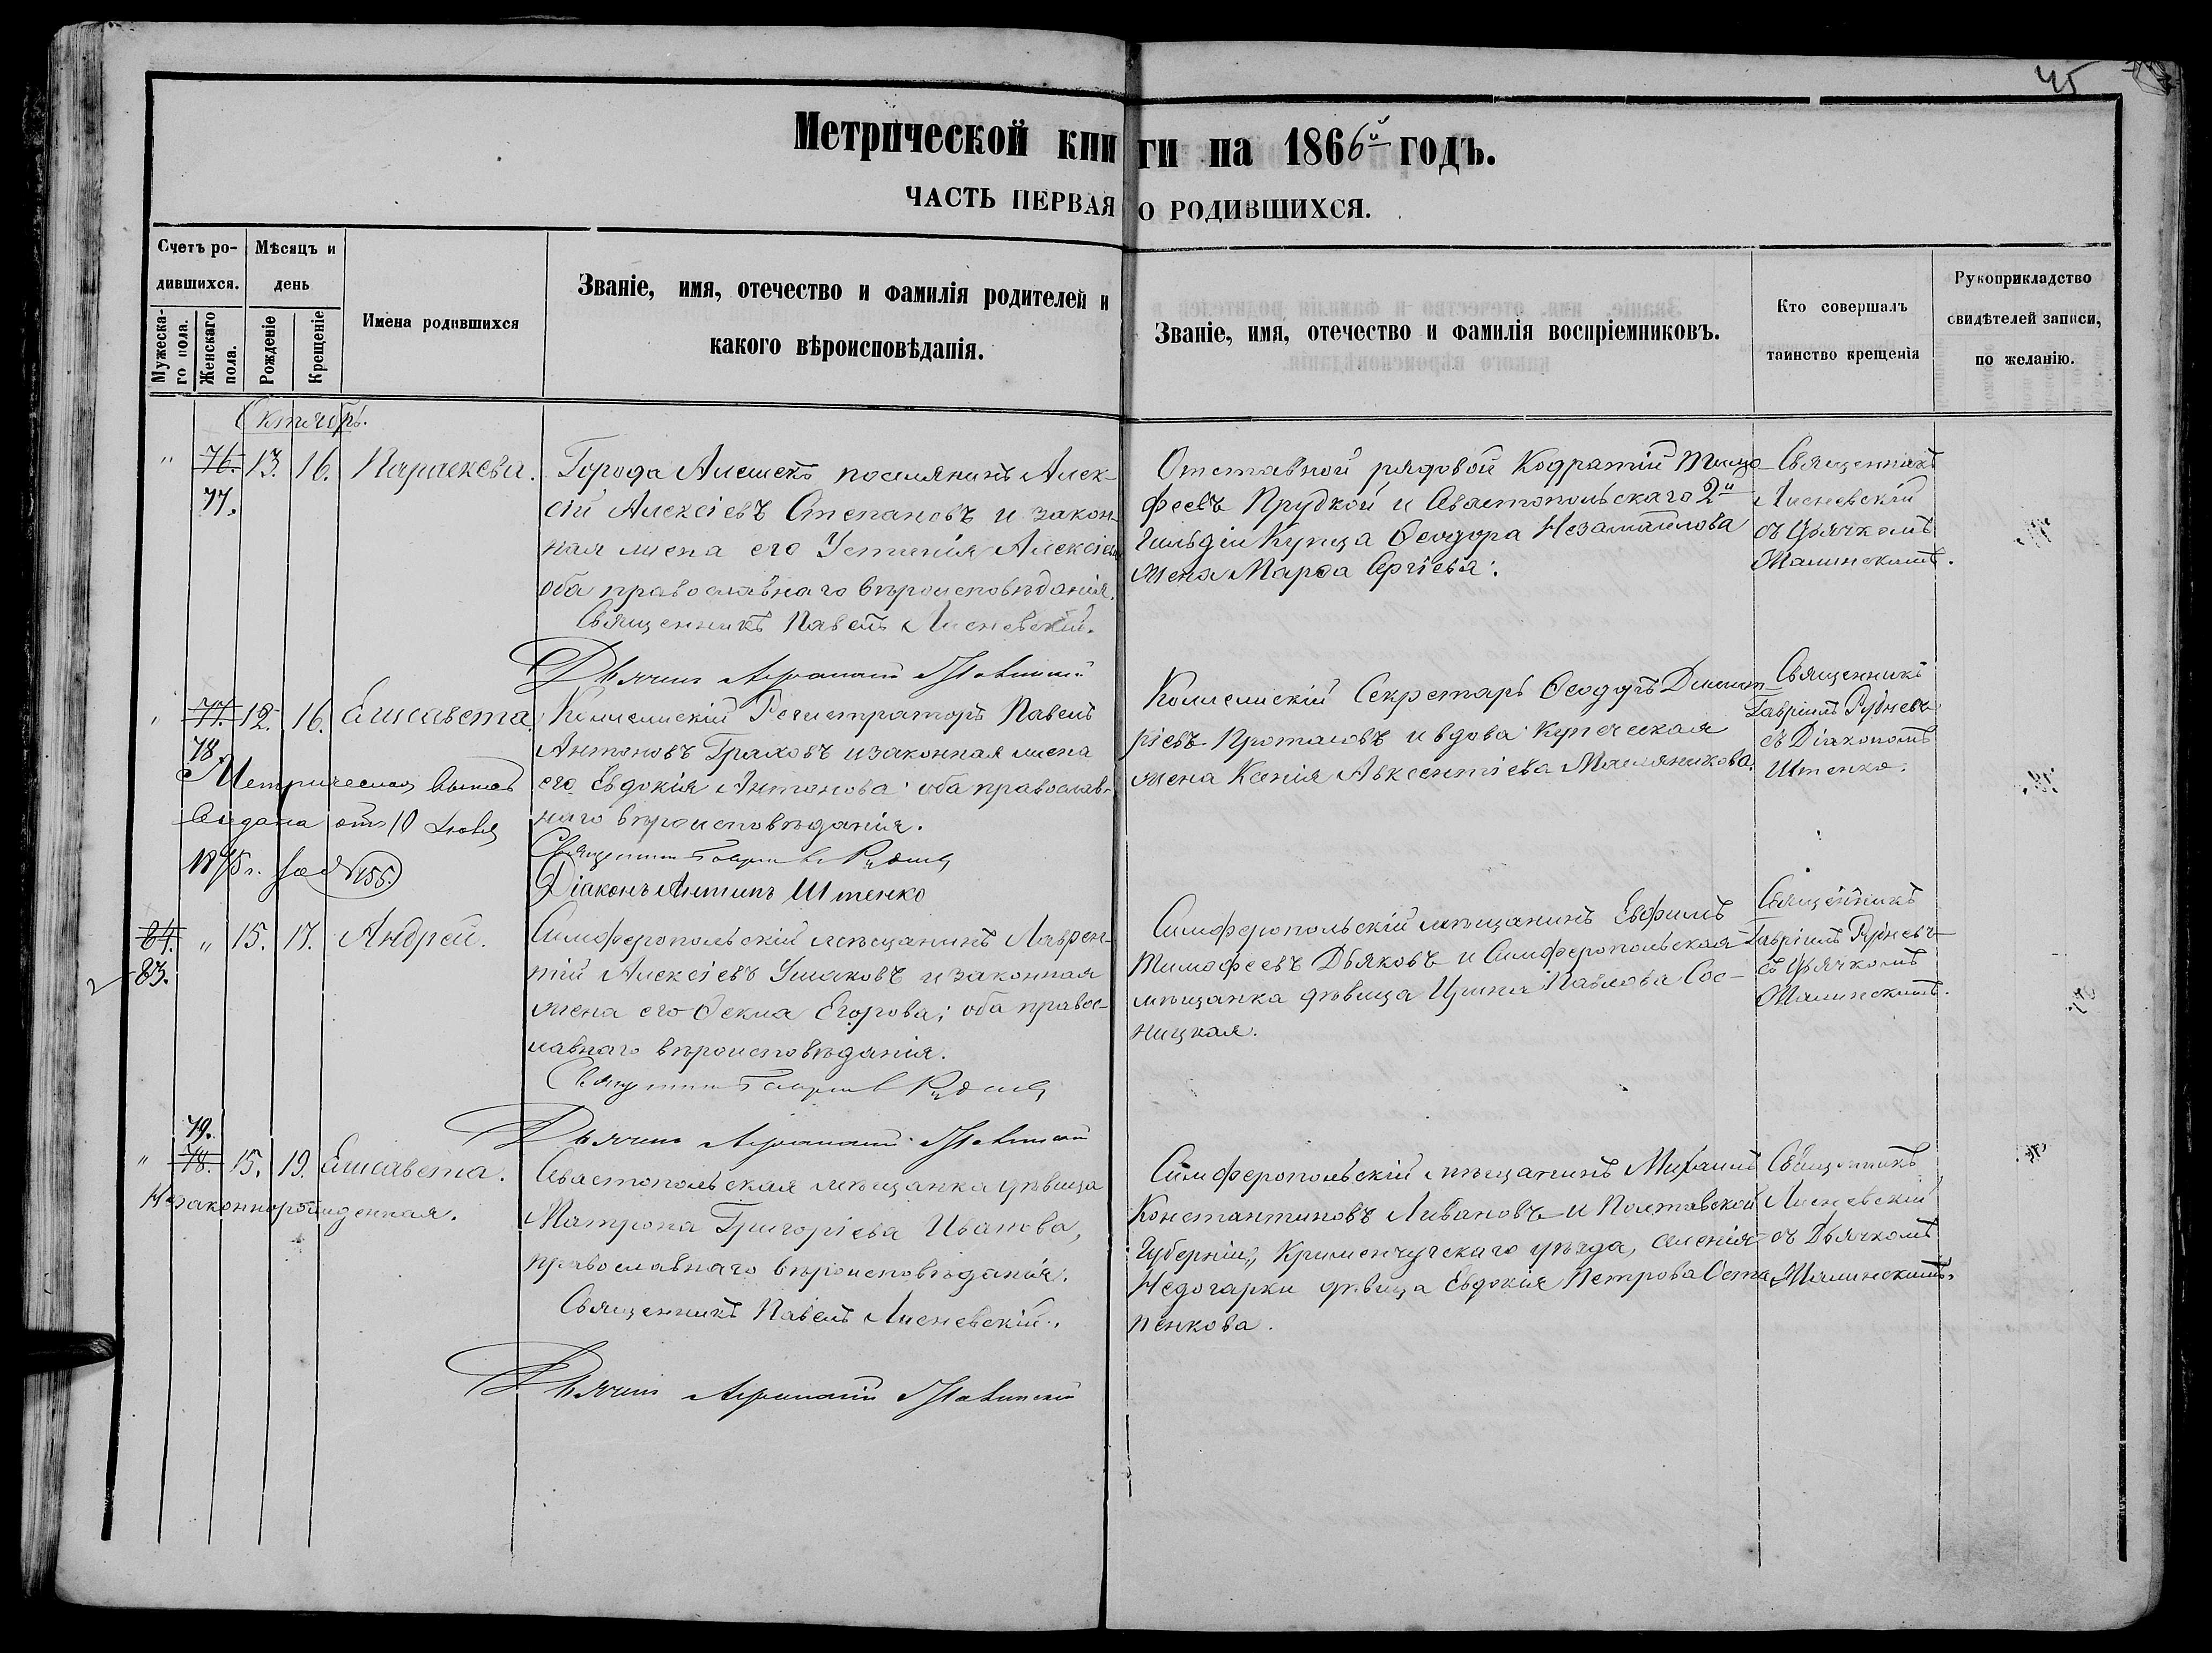 45
Метрической книги на 1866й годъ.
ЧАСТЬ ПЕРВАЯ О РОДИВШИХСЯ.
Счетъ родившихся.
Мужескаго пола.
Женскаго пола.
Мѣсяцъ и день
Рожденіе
Крещеніе
Имена родившихся
Званіе, имя, отечество и фамилія родителей и
какого вѣроисповѣданія.
Званіе, имя, отечество и фамилія воспріемниковъ.
Кто совершалъ
таинство крещенія
Рукоприкладство
свидѣтелей записи,
по желанію.
Октябрь.
" 76. 13. 16. Параскева.
77.
Города Алешекъ поселянинъ Алек-
сій Алексіевъ Степановъ и закон-
ная жена его Устинія Алексіева
оба православнаго вѣроисповѣданія.
Священникъ Павелъ Лисневскій.
Отставной рядовой Кодратій Тимо-
феевъ Прудкой и Севастопольскаго 2й
Гильдіи Купца Ѳеодора Незамаилова
жена Марѳа Сергіева.
Священникъ
Лисневскій
съ Дьячкомъ
" 77. 12. 16. Елисавета.
78.
Метрическая
Выдана отъ 10 Іюля
1875 г. за № 155.
Коллежскій Регистраторъ Павелъ
Антоновъ Граховъ и законная жена
его Евдокія Антонова оба православ-
наго вѣроисповѣданія.
Священникъ Гавріилъ Рудневъ
Діаконъ Антипъ Штенко
Коллежскій Секретарь Ѳеодоръ Димит-
ріевъ Протасовъ и вдова Купеческая
жена Ксенія Авксентіева Масляникова.
Священникъ
Гавріилъ Рудневъ
съ Діакономъ
Штенко.
84. " 15. 17. Андрей.
83.
Симферопольскій мѣщанинъ Лаврен-
тій Алексіевъ Ушаковъ и законная
жена его Ѳекла Егорова; оба правос-
лавнаго вѣроисповѣданія.
Священникъ Гавріилъ Рудневъ
Симферопольскій мѣщанинъ Евфимъ
Тимофеевъ Дьяковъ и Симферопольская
мѣщанка дѣвица Ирина Павлова Сос-
ницкая.
Священникъ
Гавріилъ Рудневъ
съ Дьячкомъ
79.
" 78. 15. 19. Елисавета.
Незаконнорожденная.
Севастопольская мѣщанка дѣвица
Матрона Григоріева Иванова,
православнаго вѣроисповѣданія.
Священникъ Павелъ Лисневскій.
Симферопольскій мѣщанинъ Михаилъ
Константиновъ Ливановъ и Полтавской
Губерніи, Кременчугскаго уѣзда, селенія
Недогарки дѣвица Евдокія Петрова Оста-
пенкова.
Священникъ
Лисневскій
съ Дьячкомъ